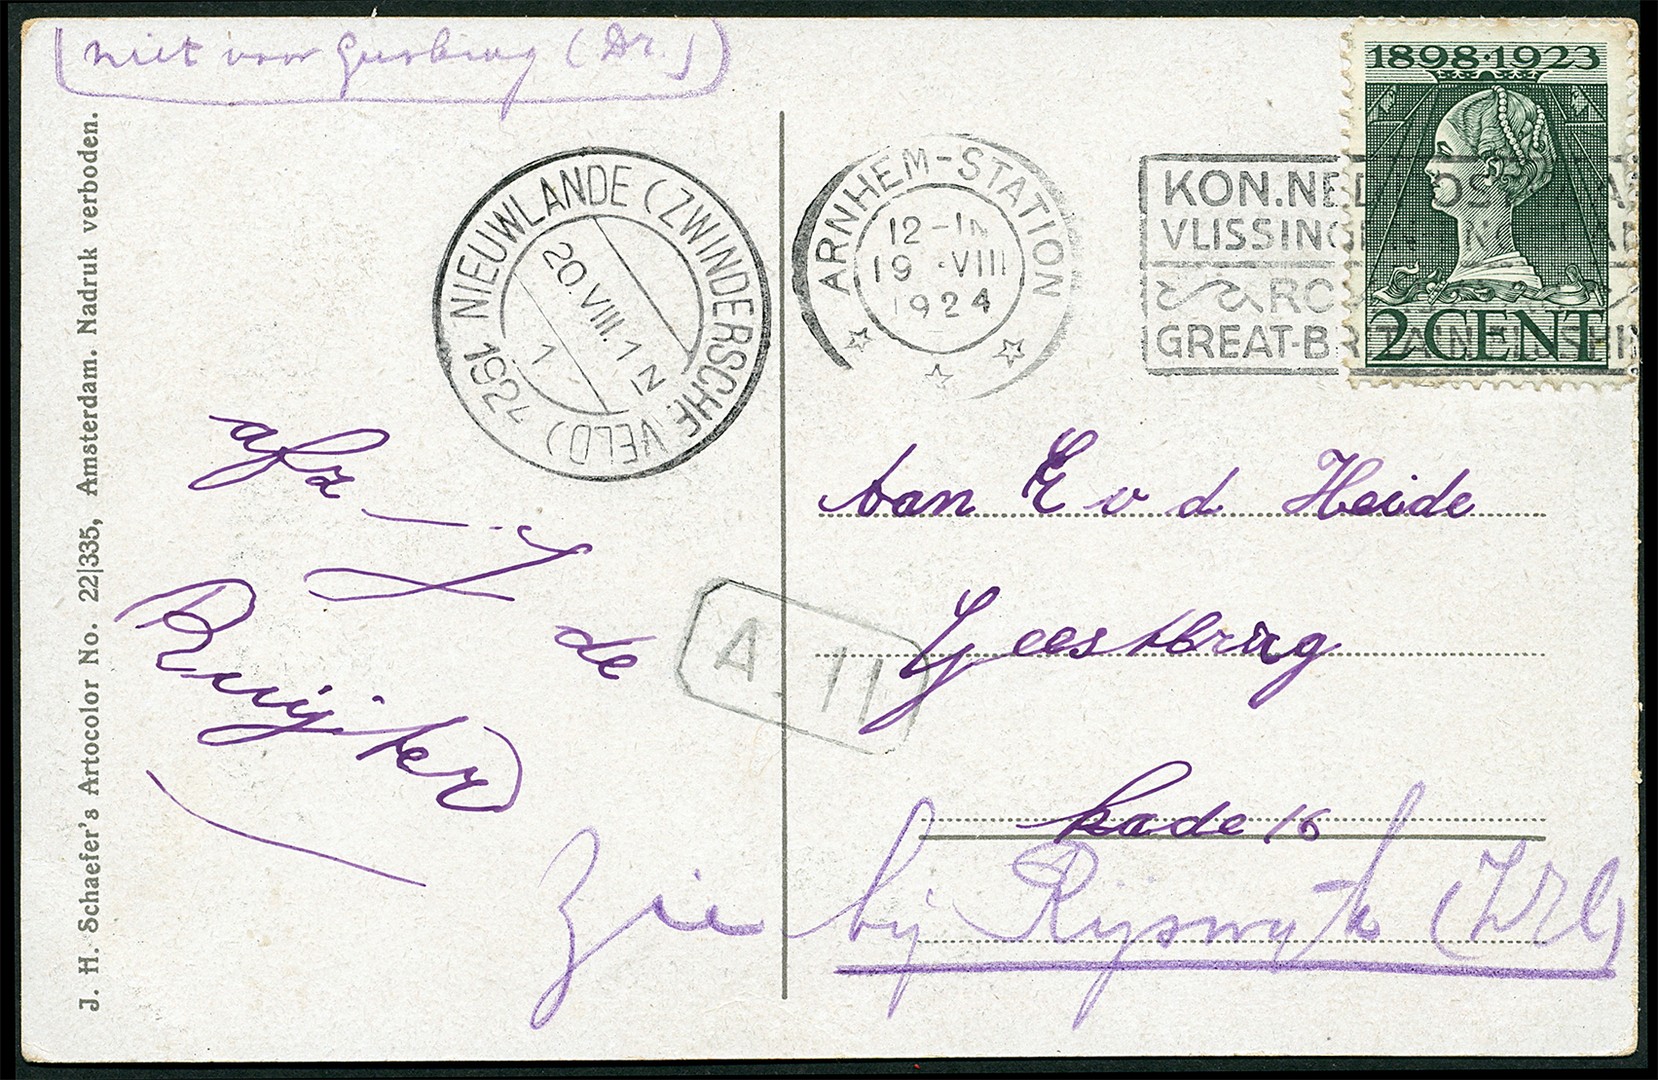 (niet voor Geesbrug (Dr.))
1898·1923
2 CENT
NIEUWLANDE (ZWINDERSCHE VELD)
20.VIII.1
1924
ARNHEM-STATION
12-1N
19 VIII
1924
KON.NED. POST
VLISSINGEN
GREAT-BRITAIN
afz
J
de
Ruijter
A 11
Aan E v d Heide
Geestbrug
kade 16
Zie bij Rijswijk (ZH)
J. H. Schaefer's Artocolor No. 22|335, Amsterdam. Nadruk verboden.